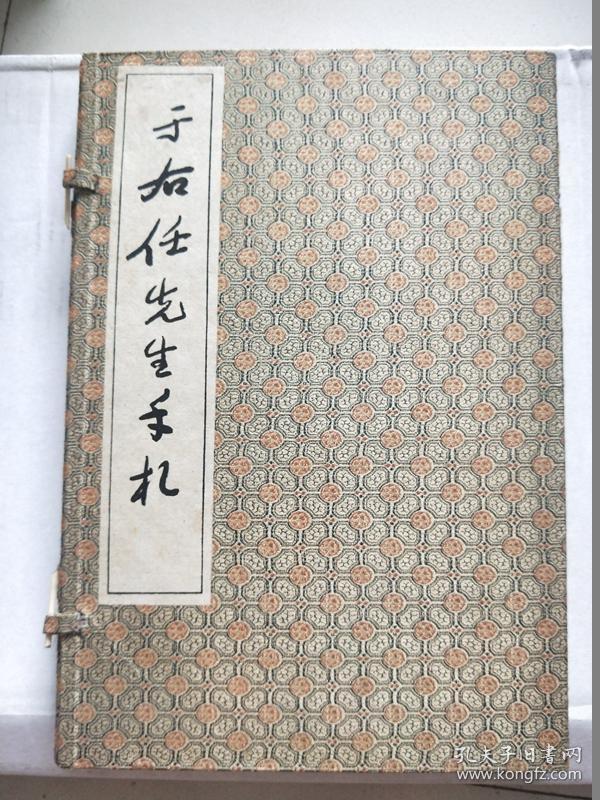 于右任先生手札
孔夫子旧書网
www.kongfz.com